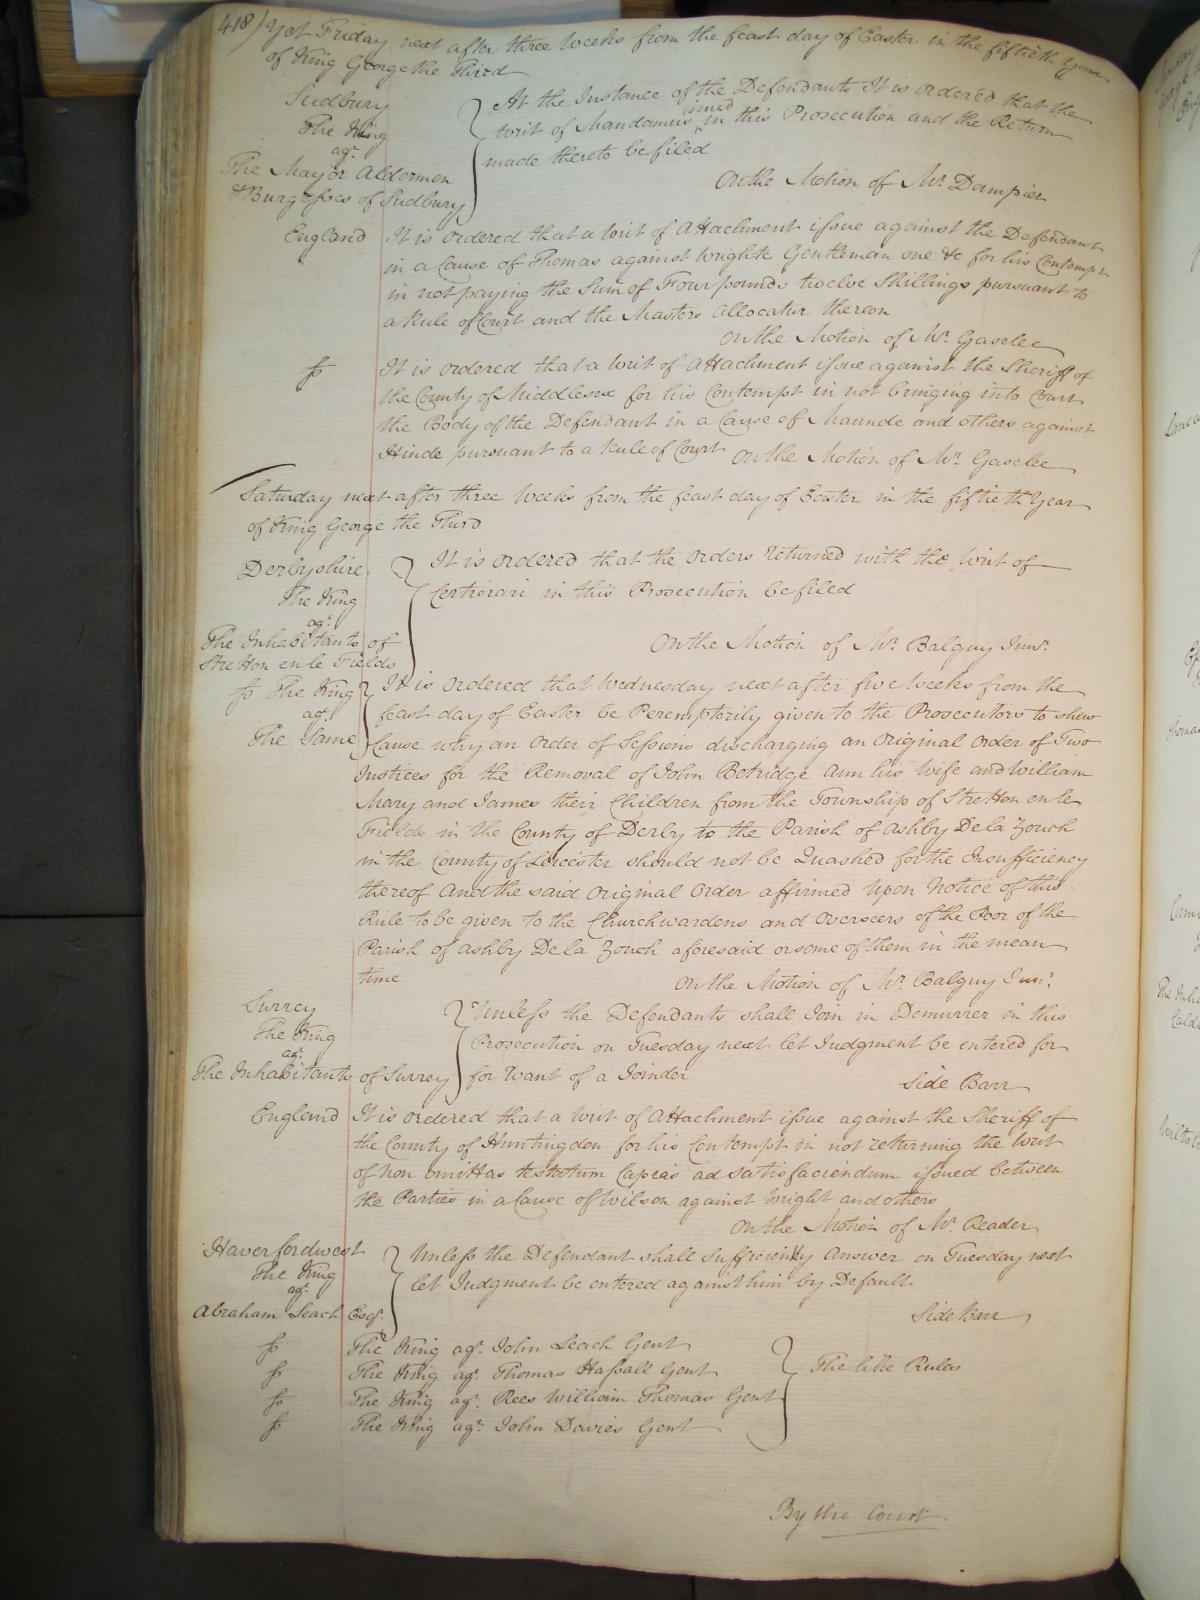 418) Yet Friday next after three Weeks from the feast day of Easter in the fiftieth Year
of King George the Third
Sudbury
The King
agt.
The Mayor Aldermen
& Burgesses of Sudbury
At the Instance of the Defendants It is ordered that the
writ of Mandamus issued in this Prosecution and the Return
made thereto be filed
On the Motion of Mr. Dampier
England It is ordered that a writ of Attachment issue against the Defendant
in a Cause of Thomas against Wrighte Gentleman one &c for his Contempt
in not paying the Sum of Four pounds twelve Shillings pursuant to
a Rule of Court and the Masters Allocatur thereon
On the Motion of Mr. Gaselee
fs It is ordered that a writ of Attachment issue against the Sheriff of
the County of Middlesex for his Contempt in not bringing into Court
the Body of the Defendant in a Cause of Maunde and others against
Hinde pursuant to a Rule of Court On the Motion of Mr. Gaselee
Saturday next after three Weeks from the feast day of Easter in the fiftieth Year
of King George the Third
Derbyshire
The King
agt.
The Inhabitants of
Stretton en le Fields
It is ordered that the orders returned with the writ of
Certiorari in this Prosecution be filed
On the Motion of Mr. Balguy Junr.
fs The King
agt.
The Same
It is ordered that Wednesday next after five Weeks from the
feast day of Easter be Peremptorily given to the Prosecutors to shew
Cause why an order of Sessions discharging an original order of Two
Justices for the Removal of John Betridge Ann his Wife and William
Mary and James their Children from the Township of Stretton en le
Fields in the County of Derby to the Parish of Ashby De la Zouch
in the County of Leicester should not be Quashed for the Insufficiency
thereof And the said original order affirmed Upon Notice of this
Rule to be given to the Churchwardens and Overseers of the Poor of the
Parish of Ashby De la Zouch aforesaid or some of them in the mean
time On the Motion of Mr. Balguy Junr.
Surrey
The King
agt.
The Inhabitants of Surrey
Unless the Defendants shall Join in Demurrer in this
Prosecution on Tuesday next let Judgment be entered for
for want of a Joinder
Side Barr
England It is ordered that a writ of Attachment issue against the Sheriff of
the County of Huntingdon for his Contempt in not returning the writ
of non omittas testatum Capias ad satisfaciendum issued between
the Parties in a Cause of Wilson against Wright and others
On the Motion of Mr. Reader
Haverfordwest
The King
agt.
Abraham Leach Esqr.
Unless the Defendant shall sufficiently Answer on Tuesday next
let Judgment be entered against him by Default
Side Barr
fs The King agt. John Leach Gent
fs The King agt. Thomas Hassall Gent
fs The King agt. Rees William Thomas Gent
fs The King agt. John Davies Gent
The like Rules
By the Court